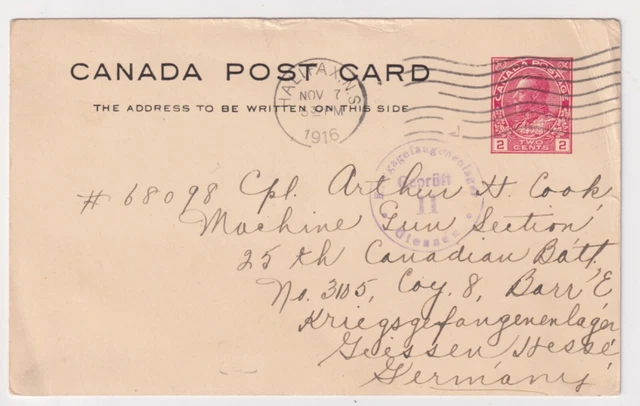 CANADA POST CARD
THE ADDRESS TO BE WRITTEN ON THIS SIDE
HALIFAX, N.S.
NOV 7
PM
1916
CANADA POSTAGE
2 TWO CENTS 2
Kriegsgefangenenlager
Geprüft
11
Giessen
# 68098 Cpl. Arthur H. Cook
Machine Gun Section
25th Canadian Batt.
No. 3105, Coy. 8, Barr E
Kriegsgefangenenlager
Giessen Hesse
Germany